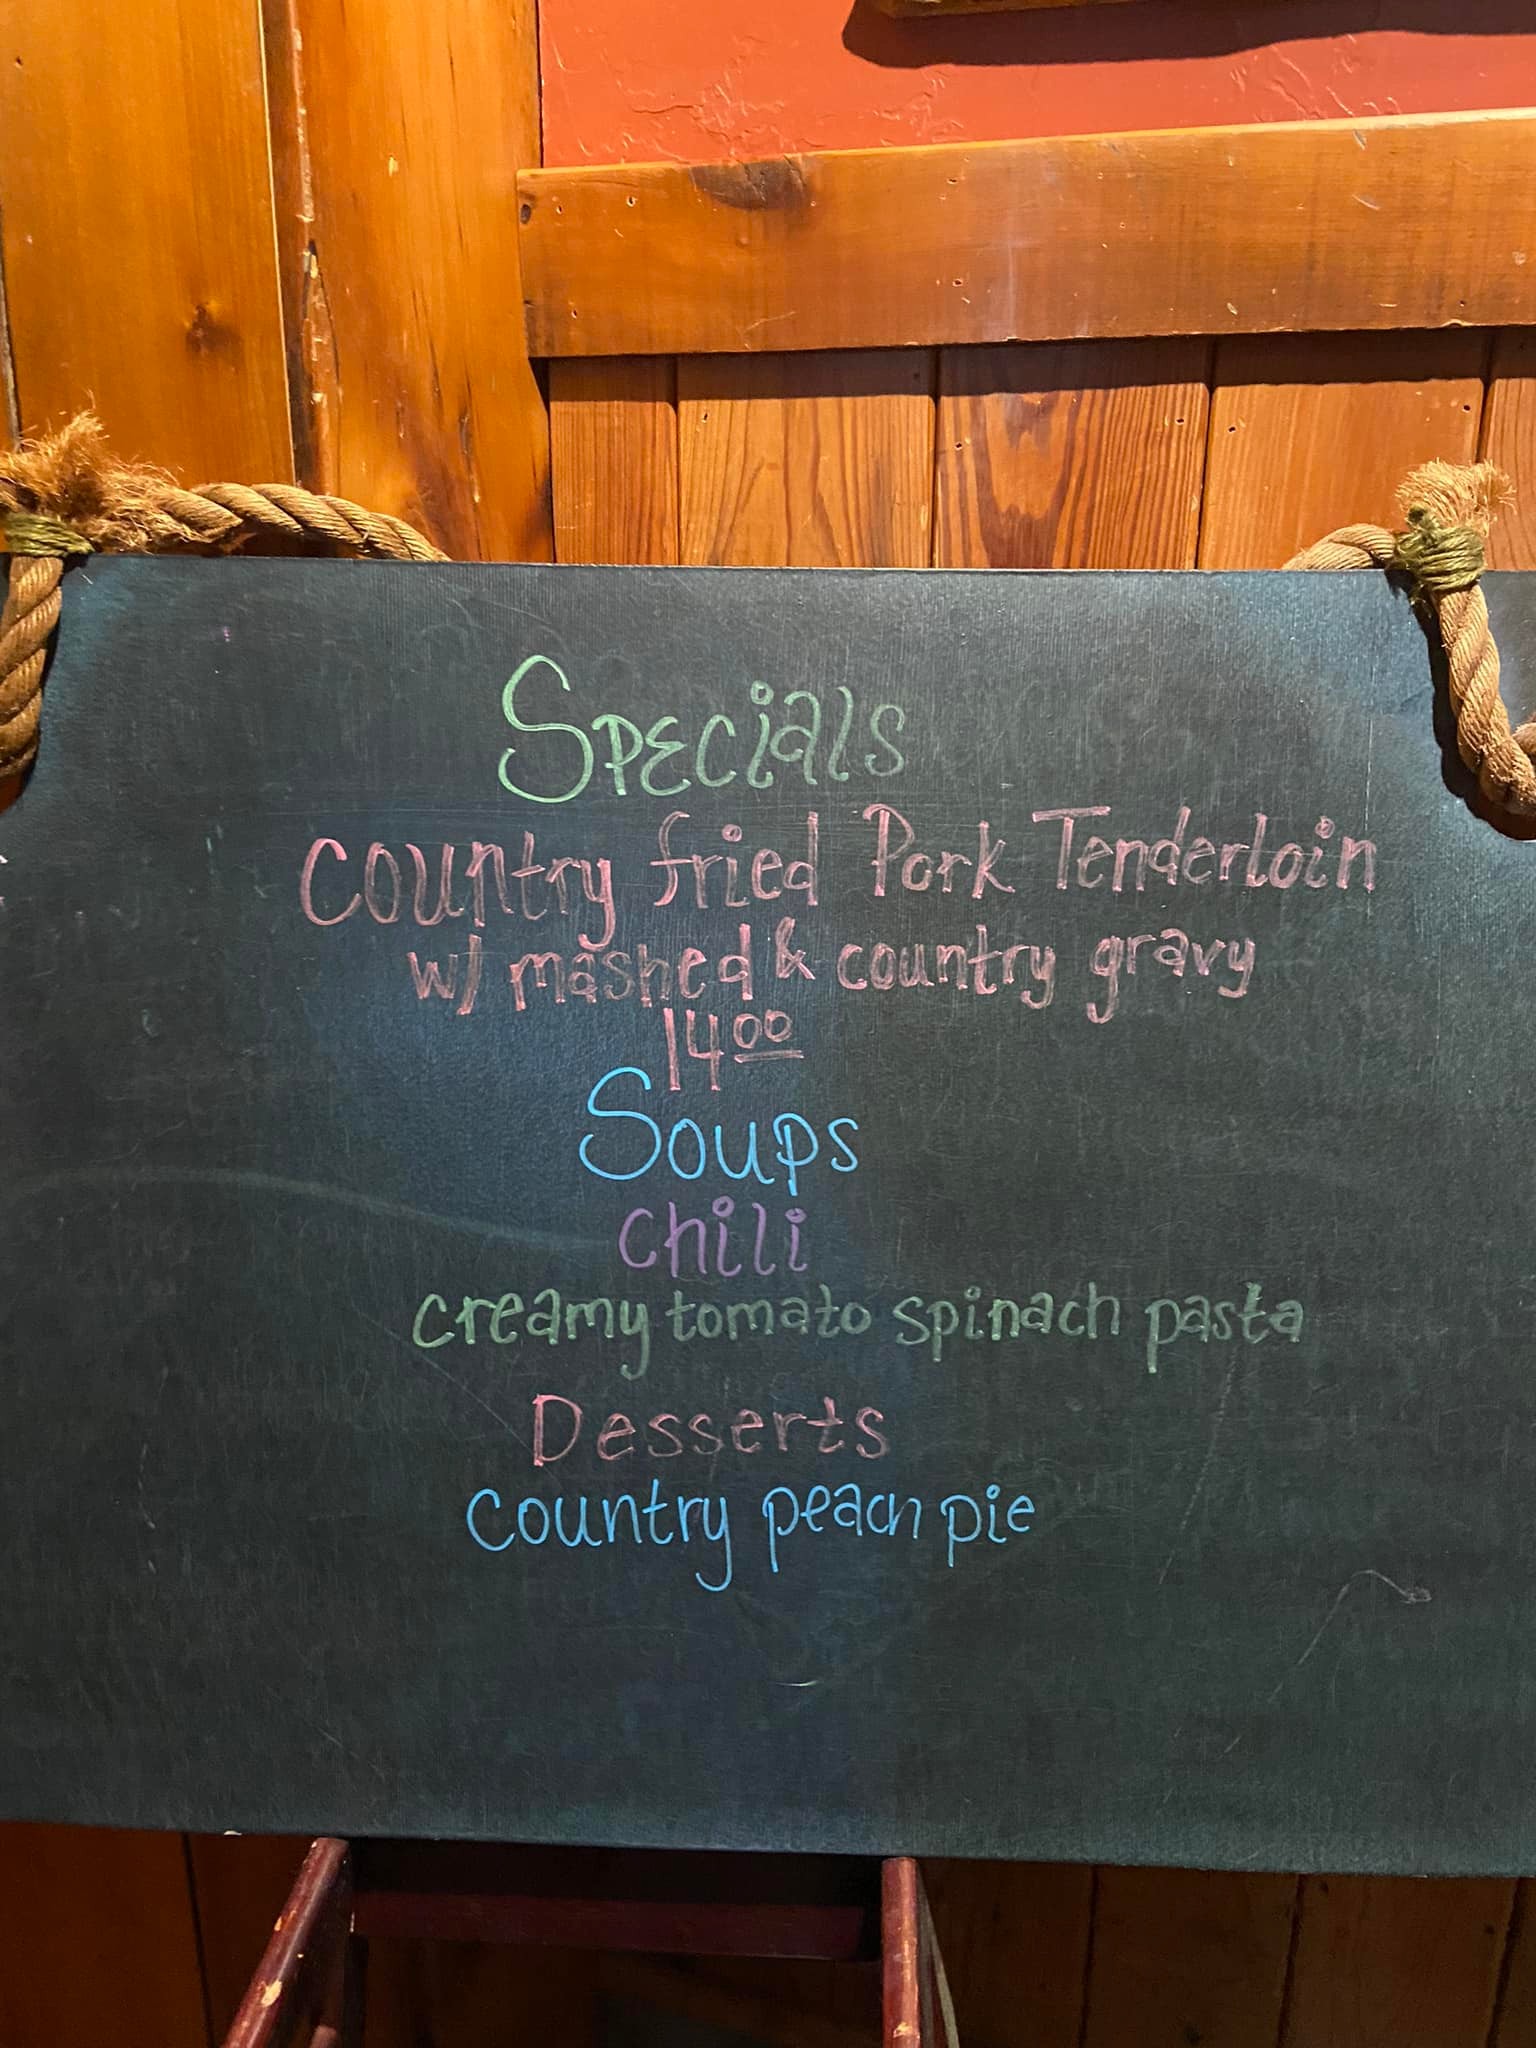 Specials
Country fried Pork Tenderloin
w/ mashed & country gravy
14 00
Soups
Chili
creamy tomato spinach pasta
Desserts
Country peach pie